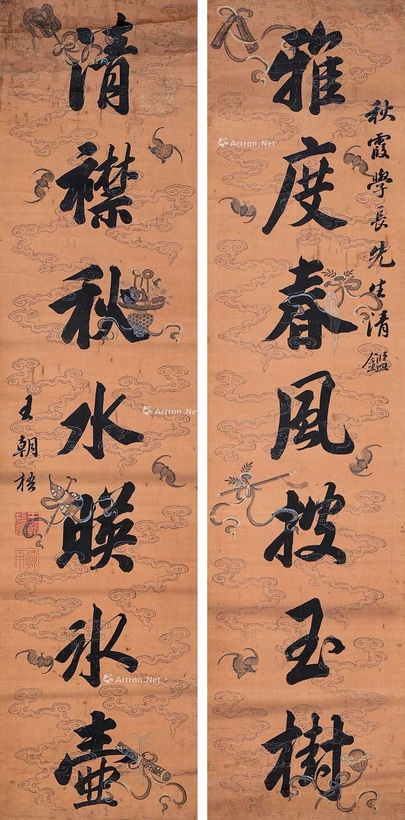 秋霞學長先生清鑑
雅度春風披玉樹
清襟秋水暎冰壺
王朝梧
Artron.Net
Artron.Net
Artron.Net
Artron.Net
Artron.Net
Artron.Net